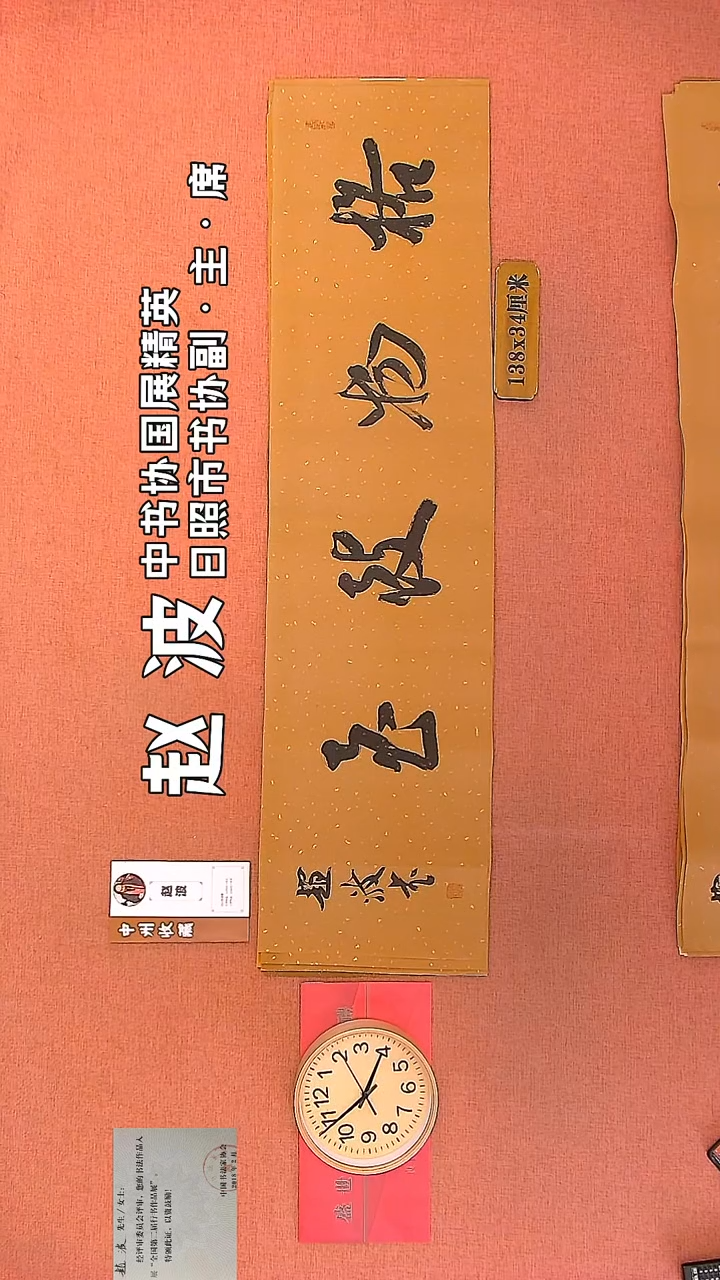 赵 波
中书协国展精英
日照市书协副·主·席
格物致知
趙波书
138x34厘米
赵波
中州收藏
12
1
2
3
4
5
6
7
8
9
10
11
盛世
先生／女士：
经评审委员会评审，您的书法作品入
展“全国第二届行书作品展”。
特颁此证，以资鼓励！
中国书法家协会